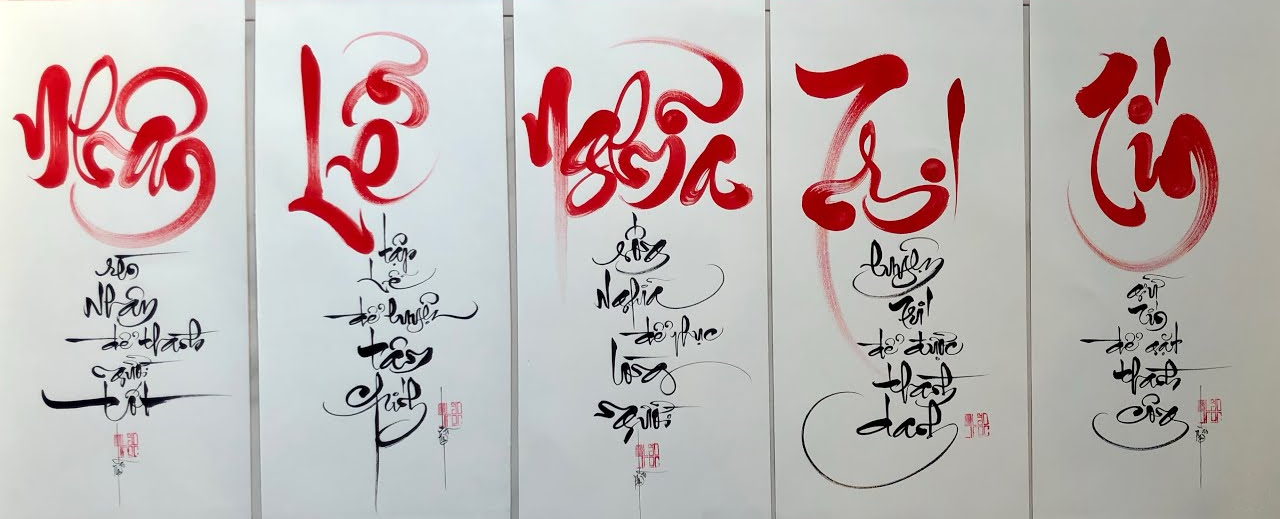 Nhân
rèn
Nhân
để thành
người
tốt
Lễ
tập
Lễ
để luyện
tâm
chính
Nghĩa
sống
Nghĩa
để phục
lòng
người
Trí
luyện
Trí
để được
thành
danh
Tín
giữ
Tín
để gặt
thành
công